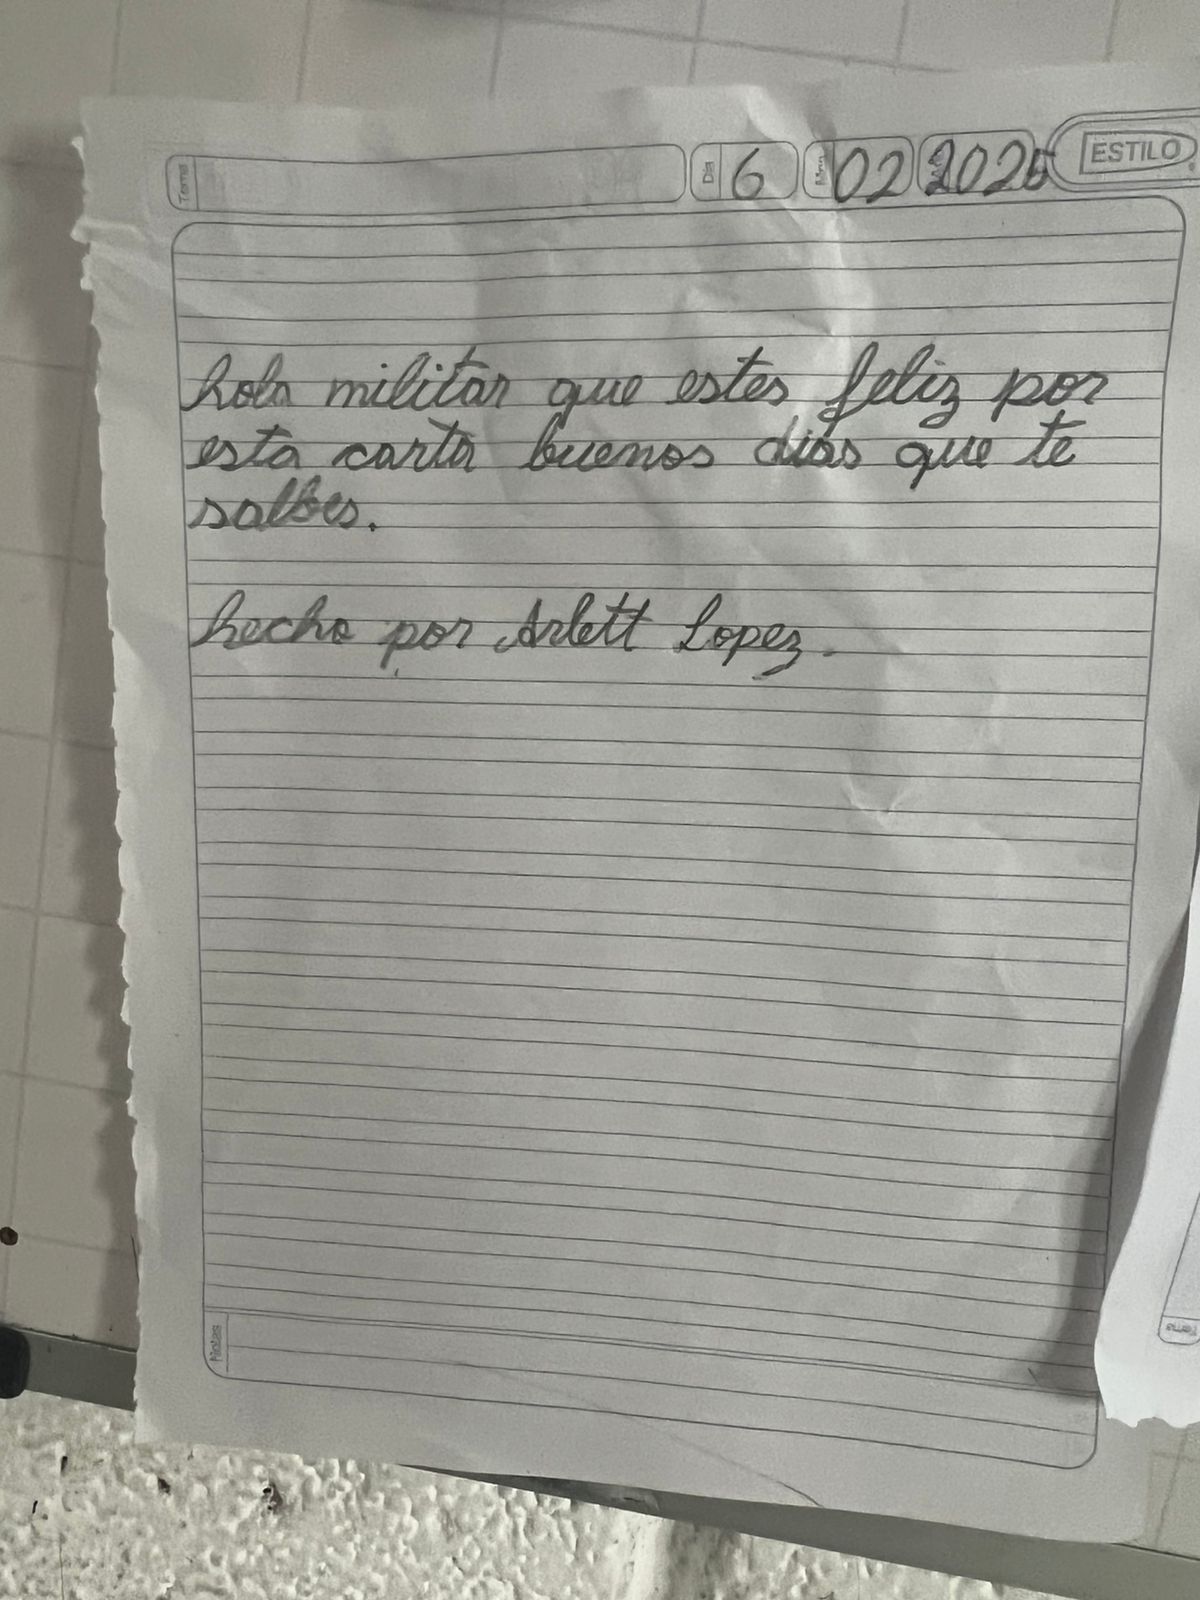 Tema Día 6 Mes 02 Año 2025 ESTILO
hola militar que estes feliz por
esta carta buenos dias que te
salbes.
hecho por Arlett Lopez.
Notas